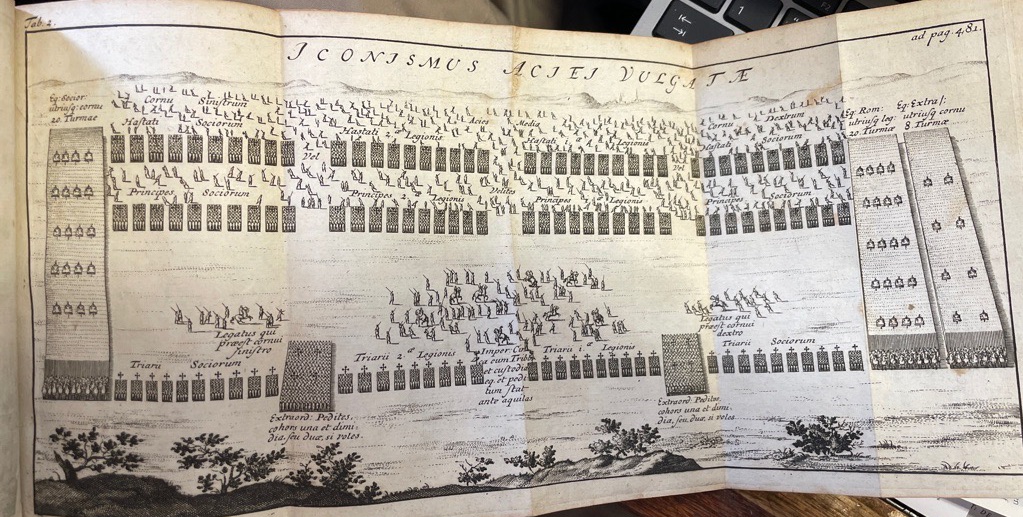 Tab. 2.
ad pag. 481.
ICONISMUS ACIEI VULGATÆ
Eq: Socior:
utriusq; cornu
20. Turmæ
Cornu Sinistrum
Hastati Sociorum
Acies Media
Hastati 2æ Legionis
Hastati 1æ Legionis
Cornu Dextrum
Hastati Sociorum
Eq: Rom:
utriusq leg:
20. Turmæ
Eq: Extra
utriusq cornu
8. Turmæ
Vel
Velites
Vel
Principes Sociorum
Principes 2 Legionis
Principes 1 Legionis
Principes Sociorum
Legatus qui
præest cornui
sinistro
Legatus qui
præest cornui
dextro
Triarii Sociorum
Triarii 2æ Legionis
Imper: Cir
ca eum Trib:
et custodia
eq. et pedi
tum stat
ante aquilas
Triarii 1æ Legionis
Triarii Sociorum
Extraord: Pedites,
cohors una et dimi,
dia, seu duæ, si voles.
Extraord: Pedites,
cohors una et dimi,
dia, seu duæ, si voles.